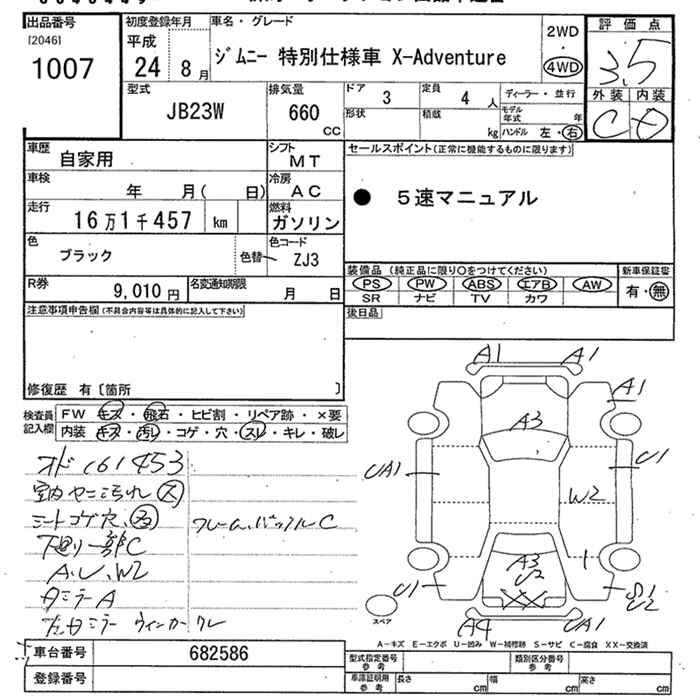 出品番号
[2046]
1007
初度登録年月
平成
24 8月
車名・グレード
ジムニー 特別仕様車 X-Adventure
2WD
・
4WD
評価点
3.5
外装 内装
C D
型式
JB23W
排気量
660
cc
ドア
3
定員
4 人
ディーラー・並行
形状
積載
kg
モデル年式
年
ハンドル 左・右
車歴
自家用
シフト
MT
車検
年 月( 日)
冷房
AC
走行
16万1千457 km
燃料
ガソリン
色
ブラック
色替
色コード
ZJ3
R券
9,010 円
名変通知期限
月 日
セールスポイント(正常に機能するものに限ります)
● 5速マニュアル
装備品 (純正品に限り○をつけてください)
PS PW ABS エアB AW
SR ナビ TV カワ
新車保証書
有・無
後日品
注意事項申告欄(不具合内容等は具体的に記入して下さい)
修復歴 有〔箇所 〕
検査員記入欄
FW キズ・飛石・ヒビ割・リペア跡・×要
内装 キズ・汚レ・コゲ・穴・スレ・キレ・破レ
オド 161453
室内ヤニ汚れ ス
シートコゲ穴、
フレーム、バックルC
下廻り一部C
A、U、W2
ミラーA
ミラー ウィンカー ワレ
A1
A1
A1
A3
UA1
U1
W2
A3
U2
U1
S1
U2
XX
A4
UA1
スペア
A-キズ E-エクボ U-凹み W-補修跡 S-サビ C-腐食 XX-交換済
車台番号
682586
登録番号
型式指定番号
参考
類別区分番号
参考
車庫証明用
参考
長さ cm
幅 cm
高さ cm